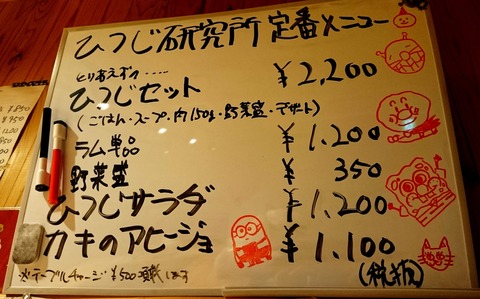 ひつじ研究所 定番メニュー
とりあえずっ‥‥‥
ひつじセット ¥2,200
(ごはん・スープ・肉150g・野菜盛・デザート)
ラム単品 ¥1,200
野菜盛 ¥350
ひつじサラダ ¥1,200
カキのアヒージョ ¥1,100
(税抜)
※テーブルチャージ ¥500頂戴します
¥850
¥950